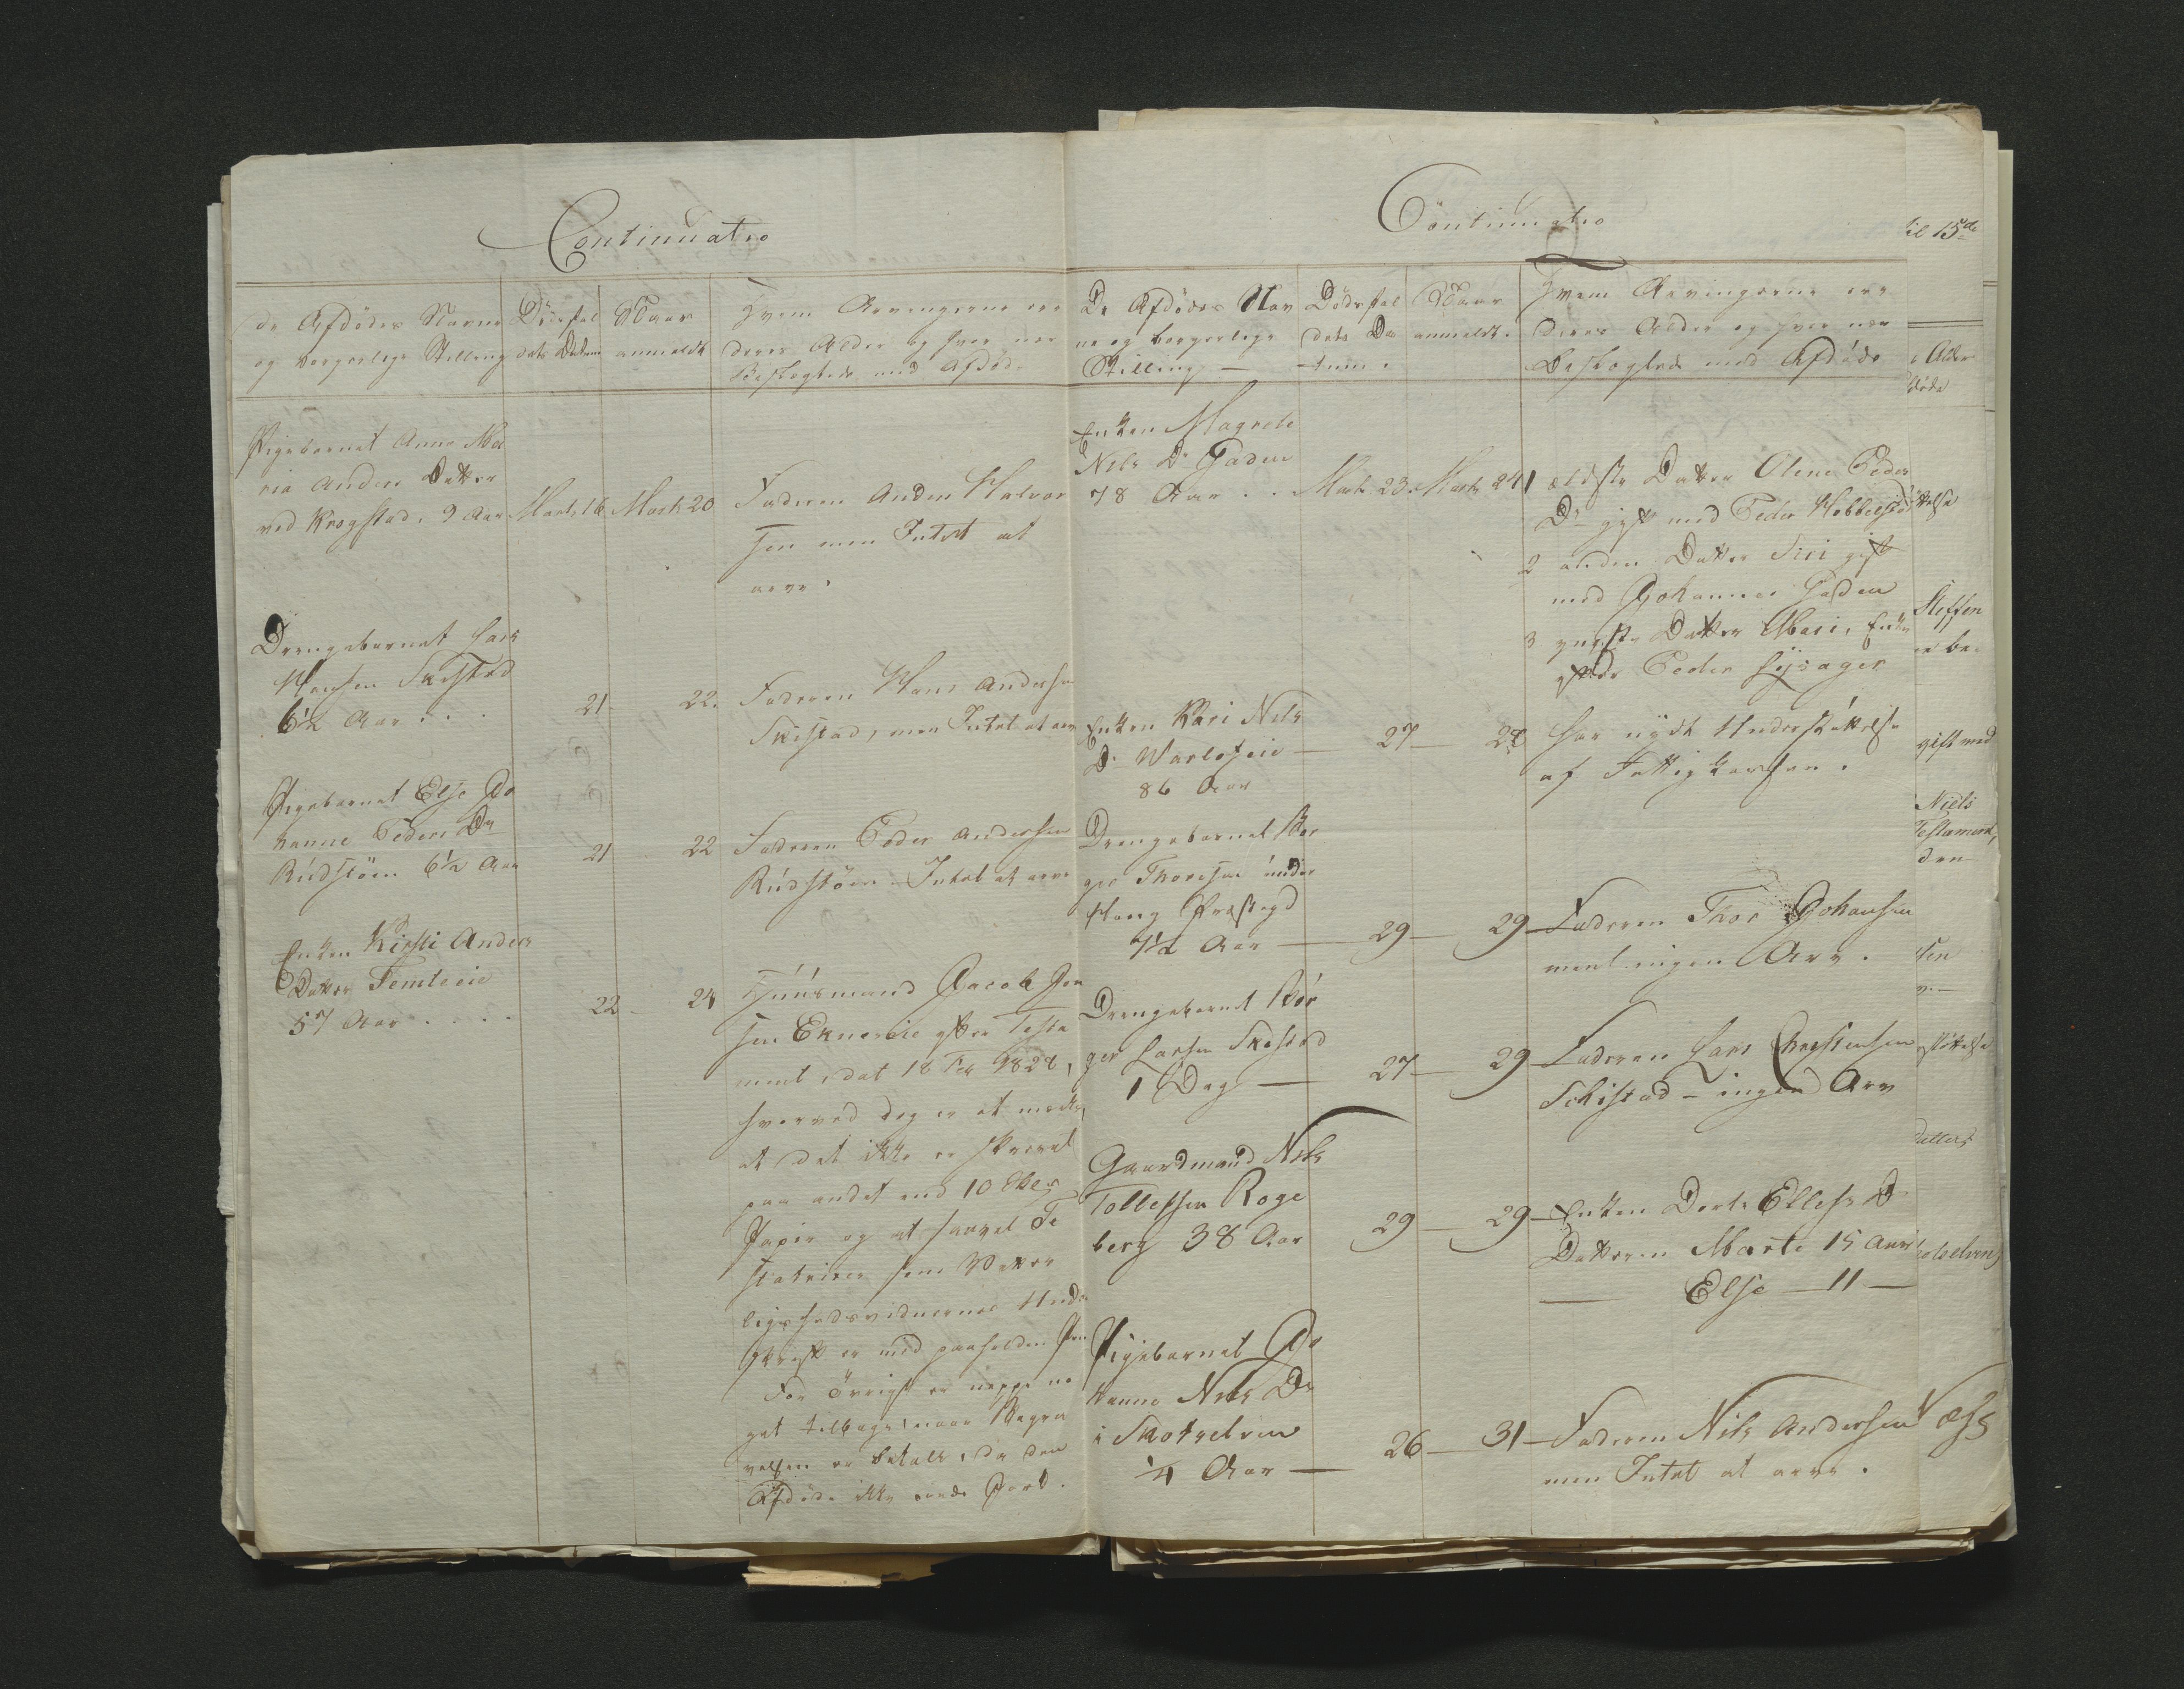 Continuatio
de Afdødes Navne
og borgerlige Stilling
Dødsfal
dets Datum
Naar
anmeldt
Hvem Arvingerne ere
deres Alder og hver nær
Beslegtede med Afdøde
Pigebarnet Anne Ma
ria Anders Datter
ved Krogstad, 9 Aar
Marts 16
Marts 20
Faderen Anders Halvor
sen men Intet at
arve.
Drengebarnet Lars
Hansen Skistad
6½ Aar . . .
21
22.
Faderen Hans Andersen
Skistad, men Intet at arve
Pigebarnet Else Jo
hanne Peders Dr
Rudstöen 6½ Aar
21
22
Faderen Peder Andersen
Rudstöen Intet at arve
Enken Kirsti Anders
Datter Temteeie
57 Aar . . . .
22
24
Huusmand Jacob Jon
sen Ekneseie efter Testa
ment, dat 18 Feb 1828,
hvorved dog er at mærke,
at det ikke er skrevet
paa andet end 10
Papir og at saavel Te
statricen som
ligshedsvidnernes Under
skrift er med paaholden Pen
For Övrigt er neppe no
get tilbage, naar Begra
velsen er betalt, da den
Afdøde ikke eiede Jord.
Continuatio
De Afdødes Nav
ne og borgerlige
Stilling —
Dødsfal
dets Da
tum.
Naar
anmeldt.
Hvem Arvingerne ere
deres Alder og hver nær
Beslegtede med Afdöde
Enken Magrete
Nels Dr Gaden
78 Aar . .
Marts 23.
Marts 24
1 ældste Datter Olene Peders
Dr gift med Peder
2 anden Datter Siri gift
med Johannes Gaden
3 yngste Datter Mari, Enke
efter Peder Lysager
Enken Kari Nels
Dr Warloseie —
86 Aar
27 —
28
har nydt Understøttelse
af Fattigkassen.
Drengebarnet Bør
ger Thoresen under
Houg Præstegd
7½ Aar —
29 —
29 —
Faderen Thor Johansen
ment ingen Arv.
Drengebarnet Bör
ger Larsen Skistad
1 Dag —
27 —
29 —
Faderen Lars Christensen
Schistad — ingen Arv
Gaardmand Nels
Tollefsen Roge
berg 38 Aar
29 —
29 —
Enken Dorte Ellefs D
Datteren Marte 15 Aar
— Else — 11 —
Pigebarnet Jo
hanne Nels Dr
i Skotselven
¼ Aar —
26 —
31 —
Faderen Nils Andersen Næss
men Intet at arve.
til 15de
Alder
døde
Steffen
be-
gift med
Niels
Testament,
den
sen
støttelse
Datters